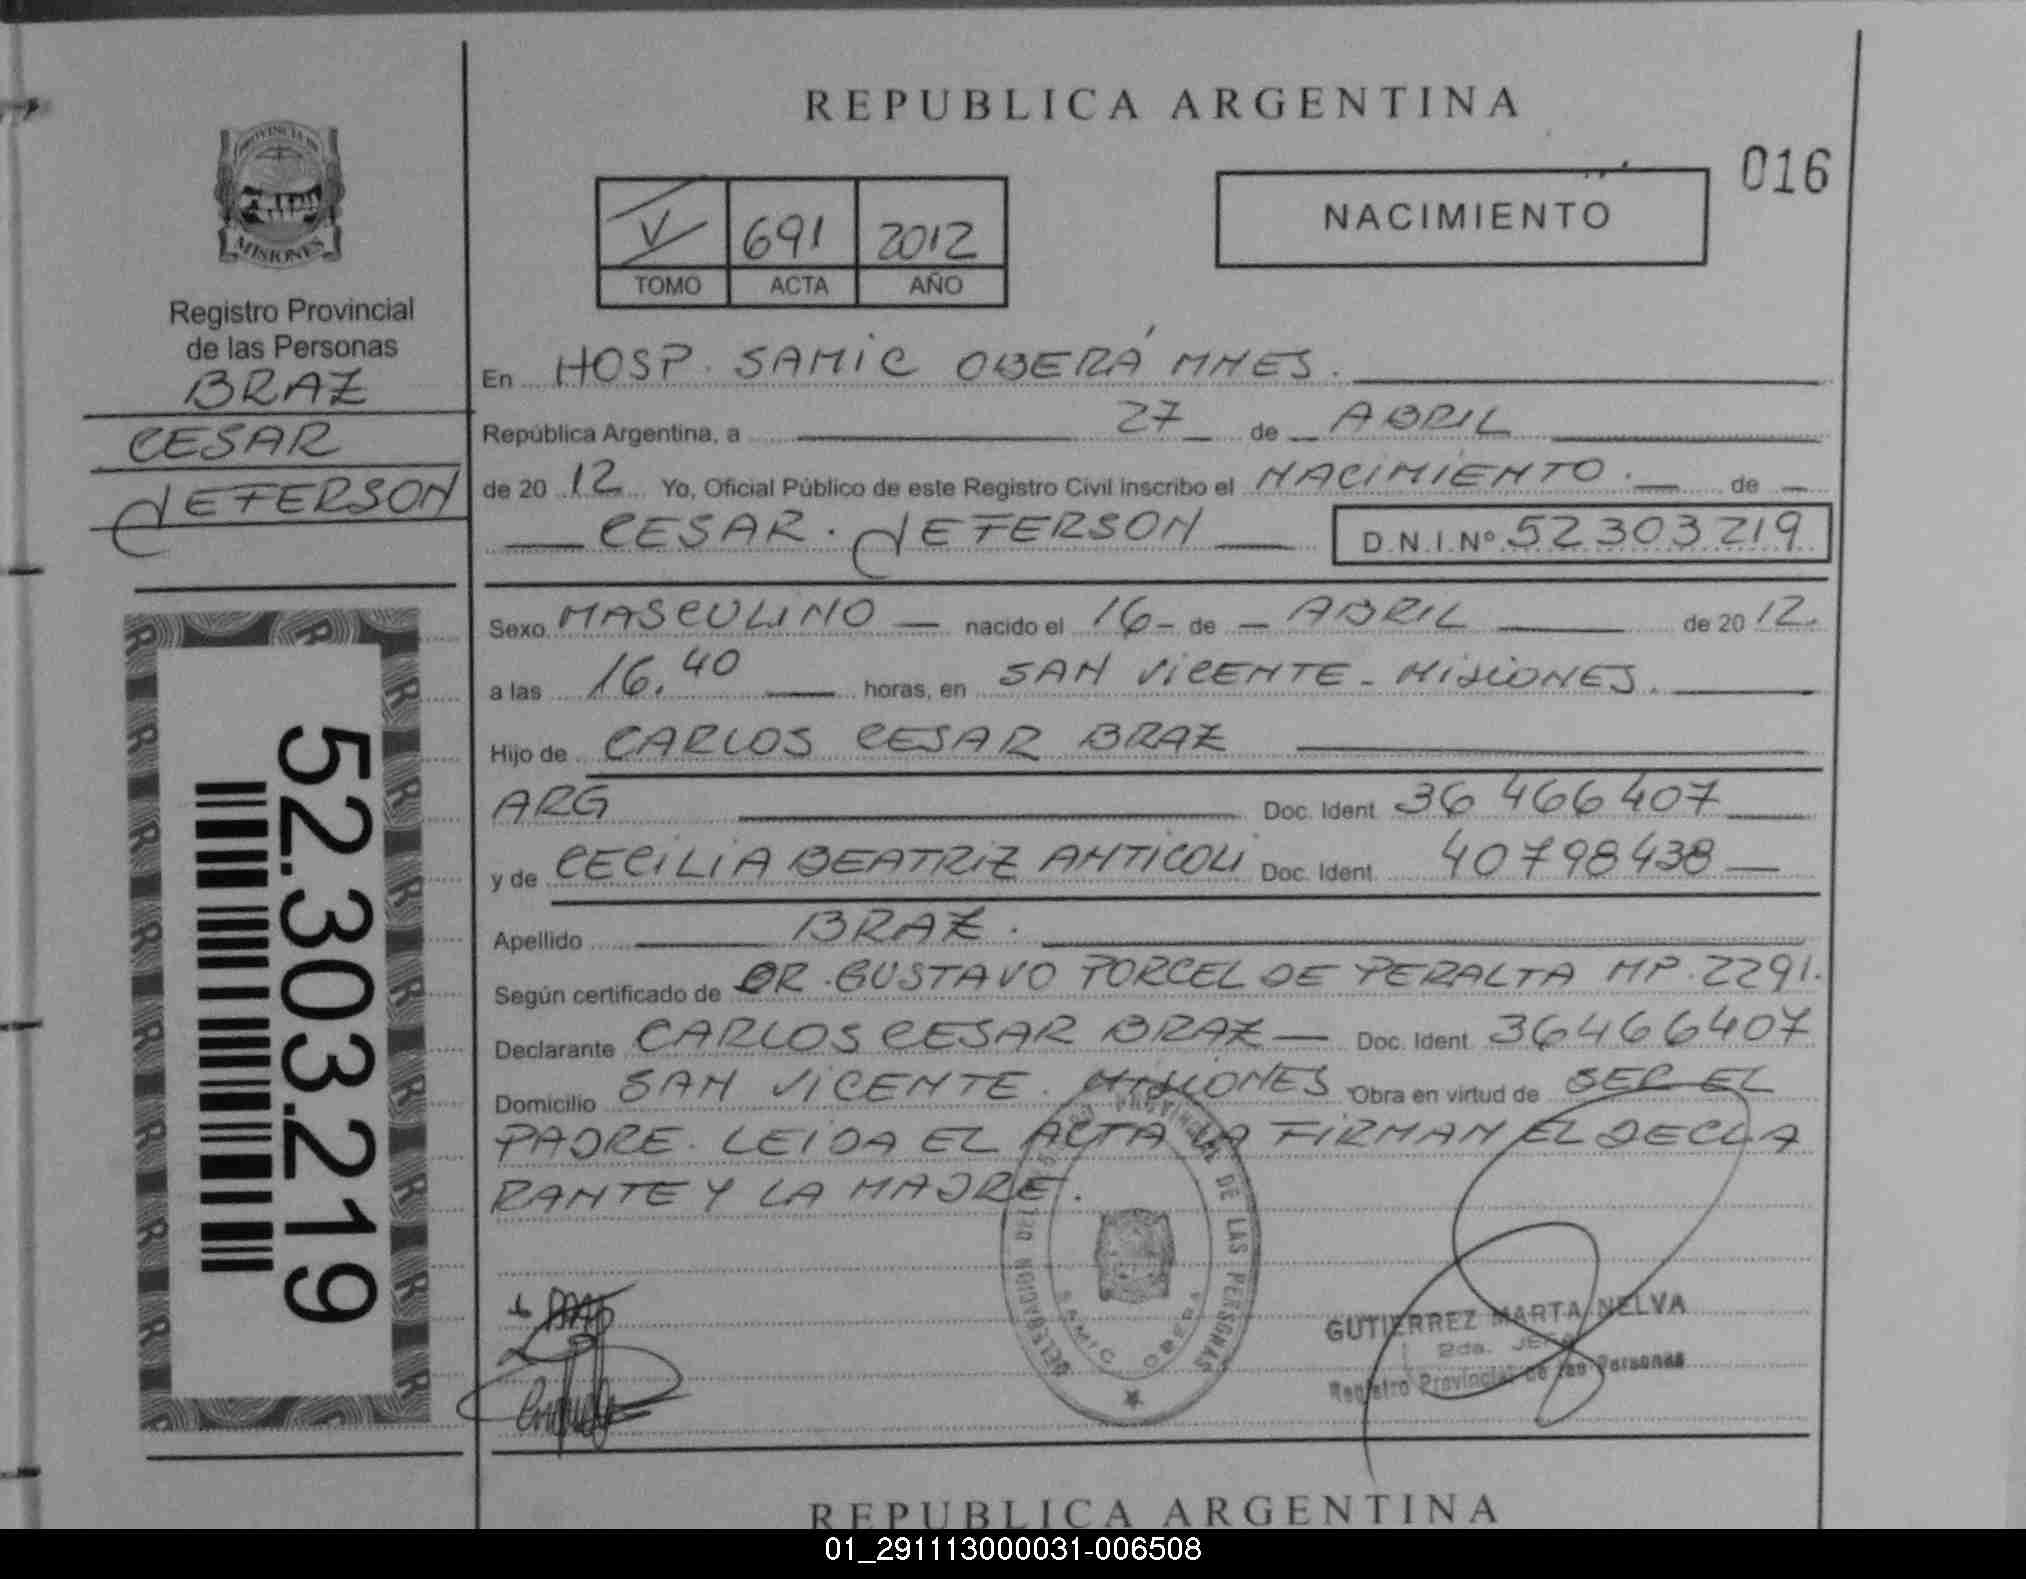 REPUBLICA ARGENTINA
016
PROVINCIA DE
MISIONES
Registro Provincial
de las Personas
BRAZ
CESAR
JEFERSON
52.303.219
V 691 2012
TOMO ACTA AÑO
NACIMIENTO
En HOSP. SAMIC OBERÁ MNES.
República Argentina, a 27 de ABRIL
de 20 12 Yo, Oficial Público de este Registro Civil inscribo el NACIMIENTO. de
CESAR. JEFERSON D.N.I.Nº 52303219
Sexo MASCULINO nacido el 16 de ABRIL de 20 12.
a las 16,40 horas, en SAN VICENTE - MISIONES.
Hijo de CARLOS CESAR BRAZ
ARG Doc. Ident 36466407
y de CECILIA BEATRIZ ANTICOLI Doc. Ident. 40798438
Apellido BRAZ.
Según certificado de DR. GUSTAVO PORCEL DE PERALTA MP. 2291.
Declarante CARLOS CESAR BRAZ Doc. Ident 36466407
Domicilio SAN VICENTE. MISIONES Obra en virtud de SER EL
PADRE. LEIDA EL ACTA LA FIRMAN EL DECLA
RANTE Y LA MADRE.
DELEGACION DEL REGISTRO PROVINCIAL DE LAS PERSONAS
SAMIC OBERA
GUTIERREZ MARTA NELVA
2da. JEFA
Registro Provincial de las Personas
REPUBLICA ARGENTINA
01_291113000031-006508